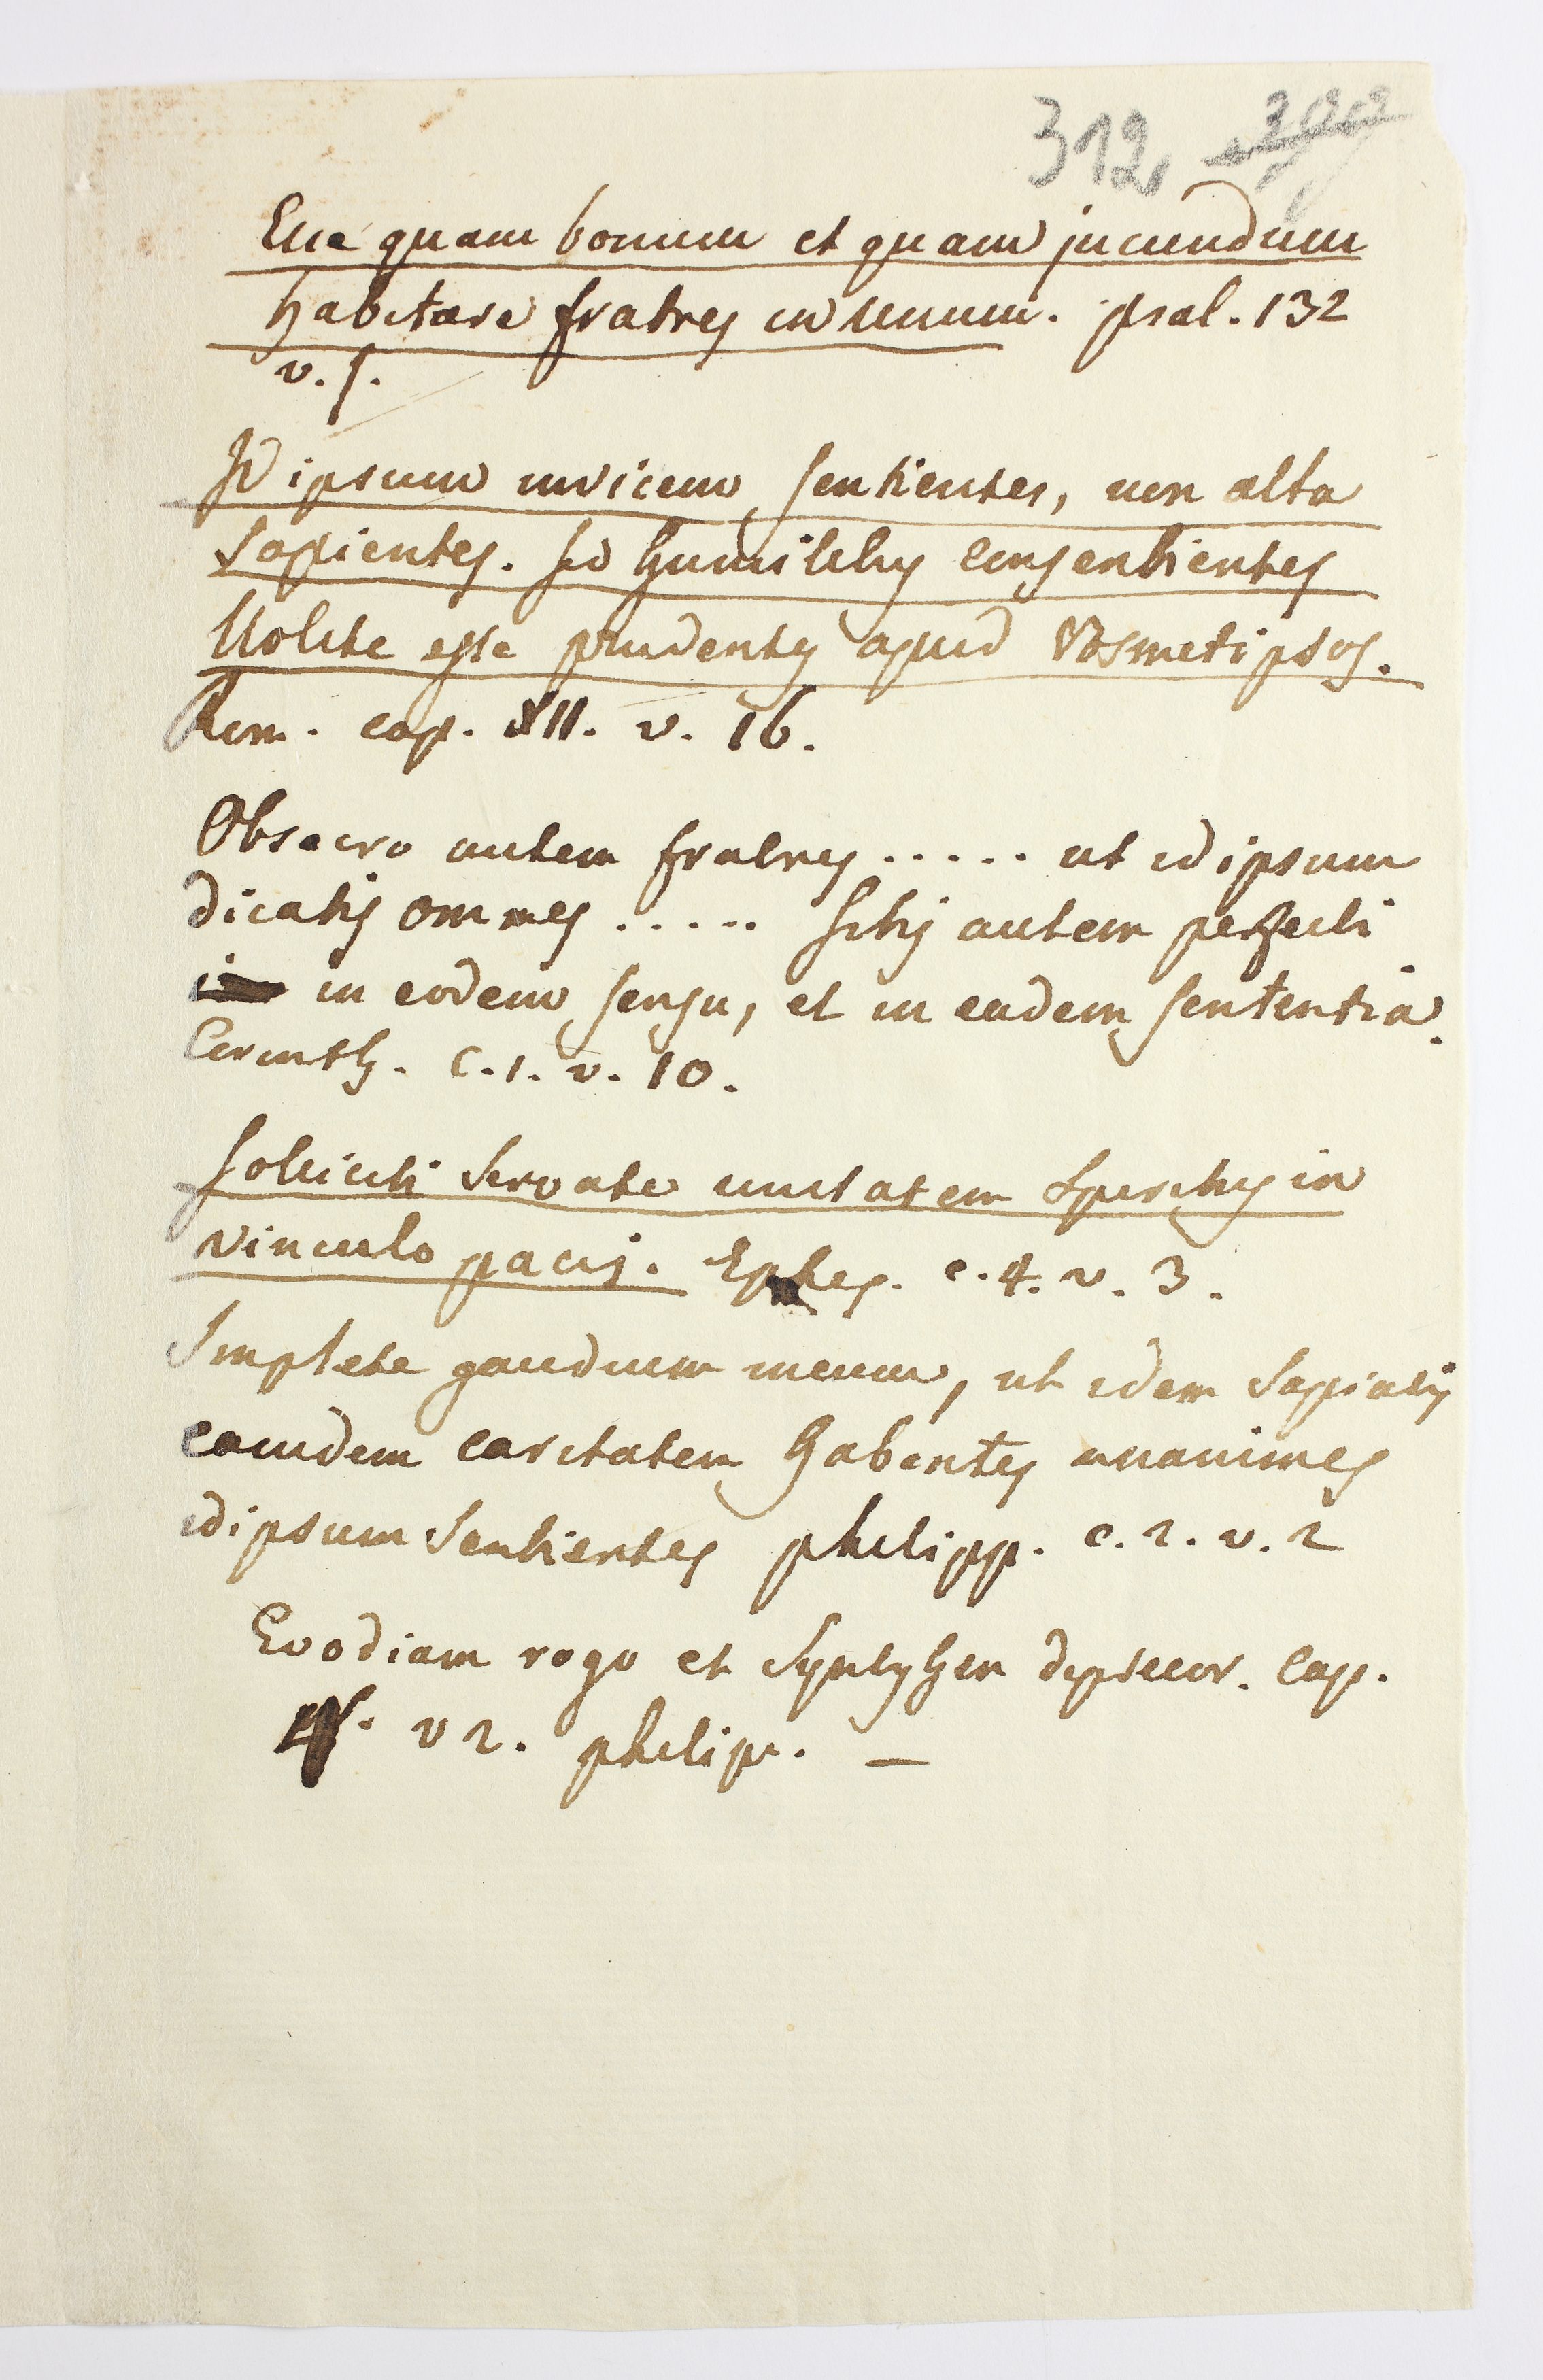 312
Ecce quam bonum et quam jucundum
habitare fratres in unum. psal. 132
v. 1.
Id ipsum invicem sentientes, non alta
sapientes. sed humilibus consentientes
Nolite esse prudentes apud vosmetipsos.
Rom. cap. XII. v. 16.
Obsecro autem fratres ..... ut id ipsum
dicatis omnes ..... sitis autem perfecti
in eodem sensu, et in eadem sententia.
Corinth. c. 1. v. 10.
solliciti servate unitatem spiritus in
vinculo pacis. Ephes. c. 4. v. 3.
Implete gaudium meum, ut idem sapiatis
eamdem caritatem habentes unanimes
idipsum sentientes philipp. c. 2. v. 2
Evodiam rogo et Syntyhen deprecor. cap.
v 2. philip. —